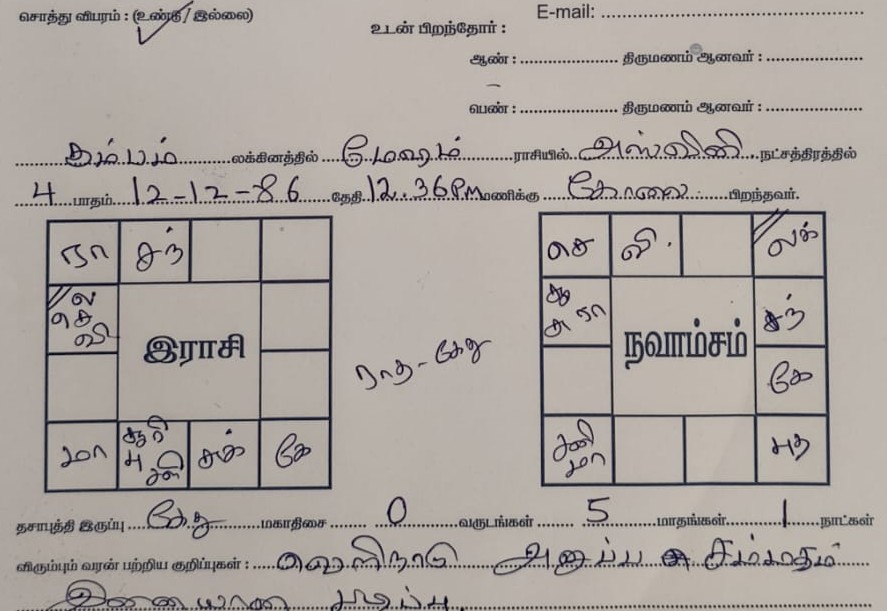 சொத்து விபரம் : (உண்டு / இல்லை)
E-mail:
உடன் பிறந்தோர் :
ஆண் : திருமணம் ஆனவர் :
பெண் : – திருமணம் ஆனவர் :
கும்பம் லக்கினத்தில் மேஷம் ராசியில் அஸ்வினி நட்சத்திரத்தில்
4 பாதம் 12-12-86 தேதி 12.36 PM மணிக்கு கோவை பிறந்தவர்.
ரா சந்
ல
செ
வி
இராசி
மா சூரி சுக் கே
பு
சனி
செ வி. லக்
சூ
சு ரா
சந்
நவாம்சம்
கே
சனி
மா
புத
ராகு - கேது
தசாபுத்தி இருப்பு கேது மகாதிசை 0 வருடங்கள் 5 மாதங்கள் 1 நாட்கள்
விரும்பும் வரன் பற்றிய குறிப்புகள் : வெளிநாடு அனுப்ப சம்மதம்
இணையான படிப்பு.